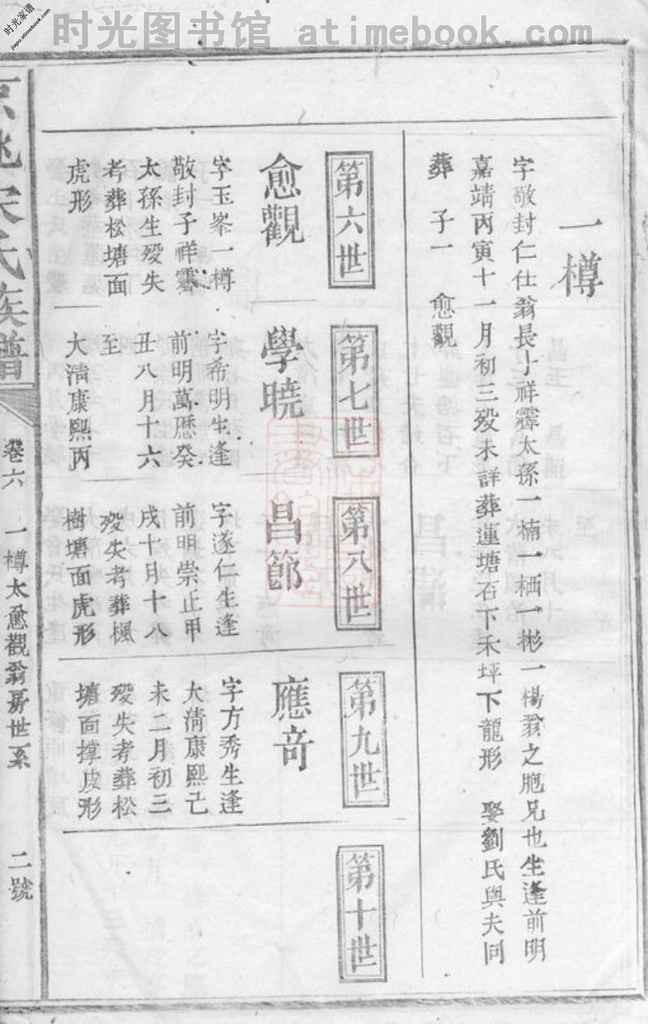 时光图书馆 atimebook.com
时光家谱
一樽
字敬封仁仕翁長子祥霽太孫一楠一栖一彬一楊翁之胞兄也生逢前明
嘉靖丙寅十一月初三殁未詳葬蓮塘石下禾坪下龍形 娶劉氏與夫同
葬 子一 愈觀
第六世
愈觀
字玉峯一樽
敬封子祥霽
太孫生殁失
考葬松塘面
虎形
第七世
學曉
字希明生逢
前明萬曆癸
丑八月十六
至
大清康熙丙
第八世
昌節
字遂仁生逢
前明崇正甲
戌十月十八
殁失考葬楓
樹塘面虎形
第九世
應奇
字方秀生逢
大清康熙己
未二月初三
殁失考葬松
塘面撑皮形
第十世
宋氏族譜
卷六 一樽太愈觀翁房世系 二號